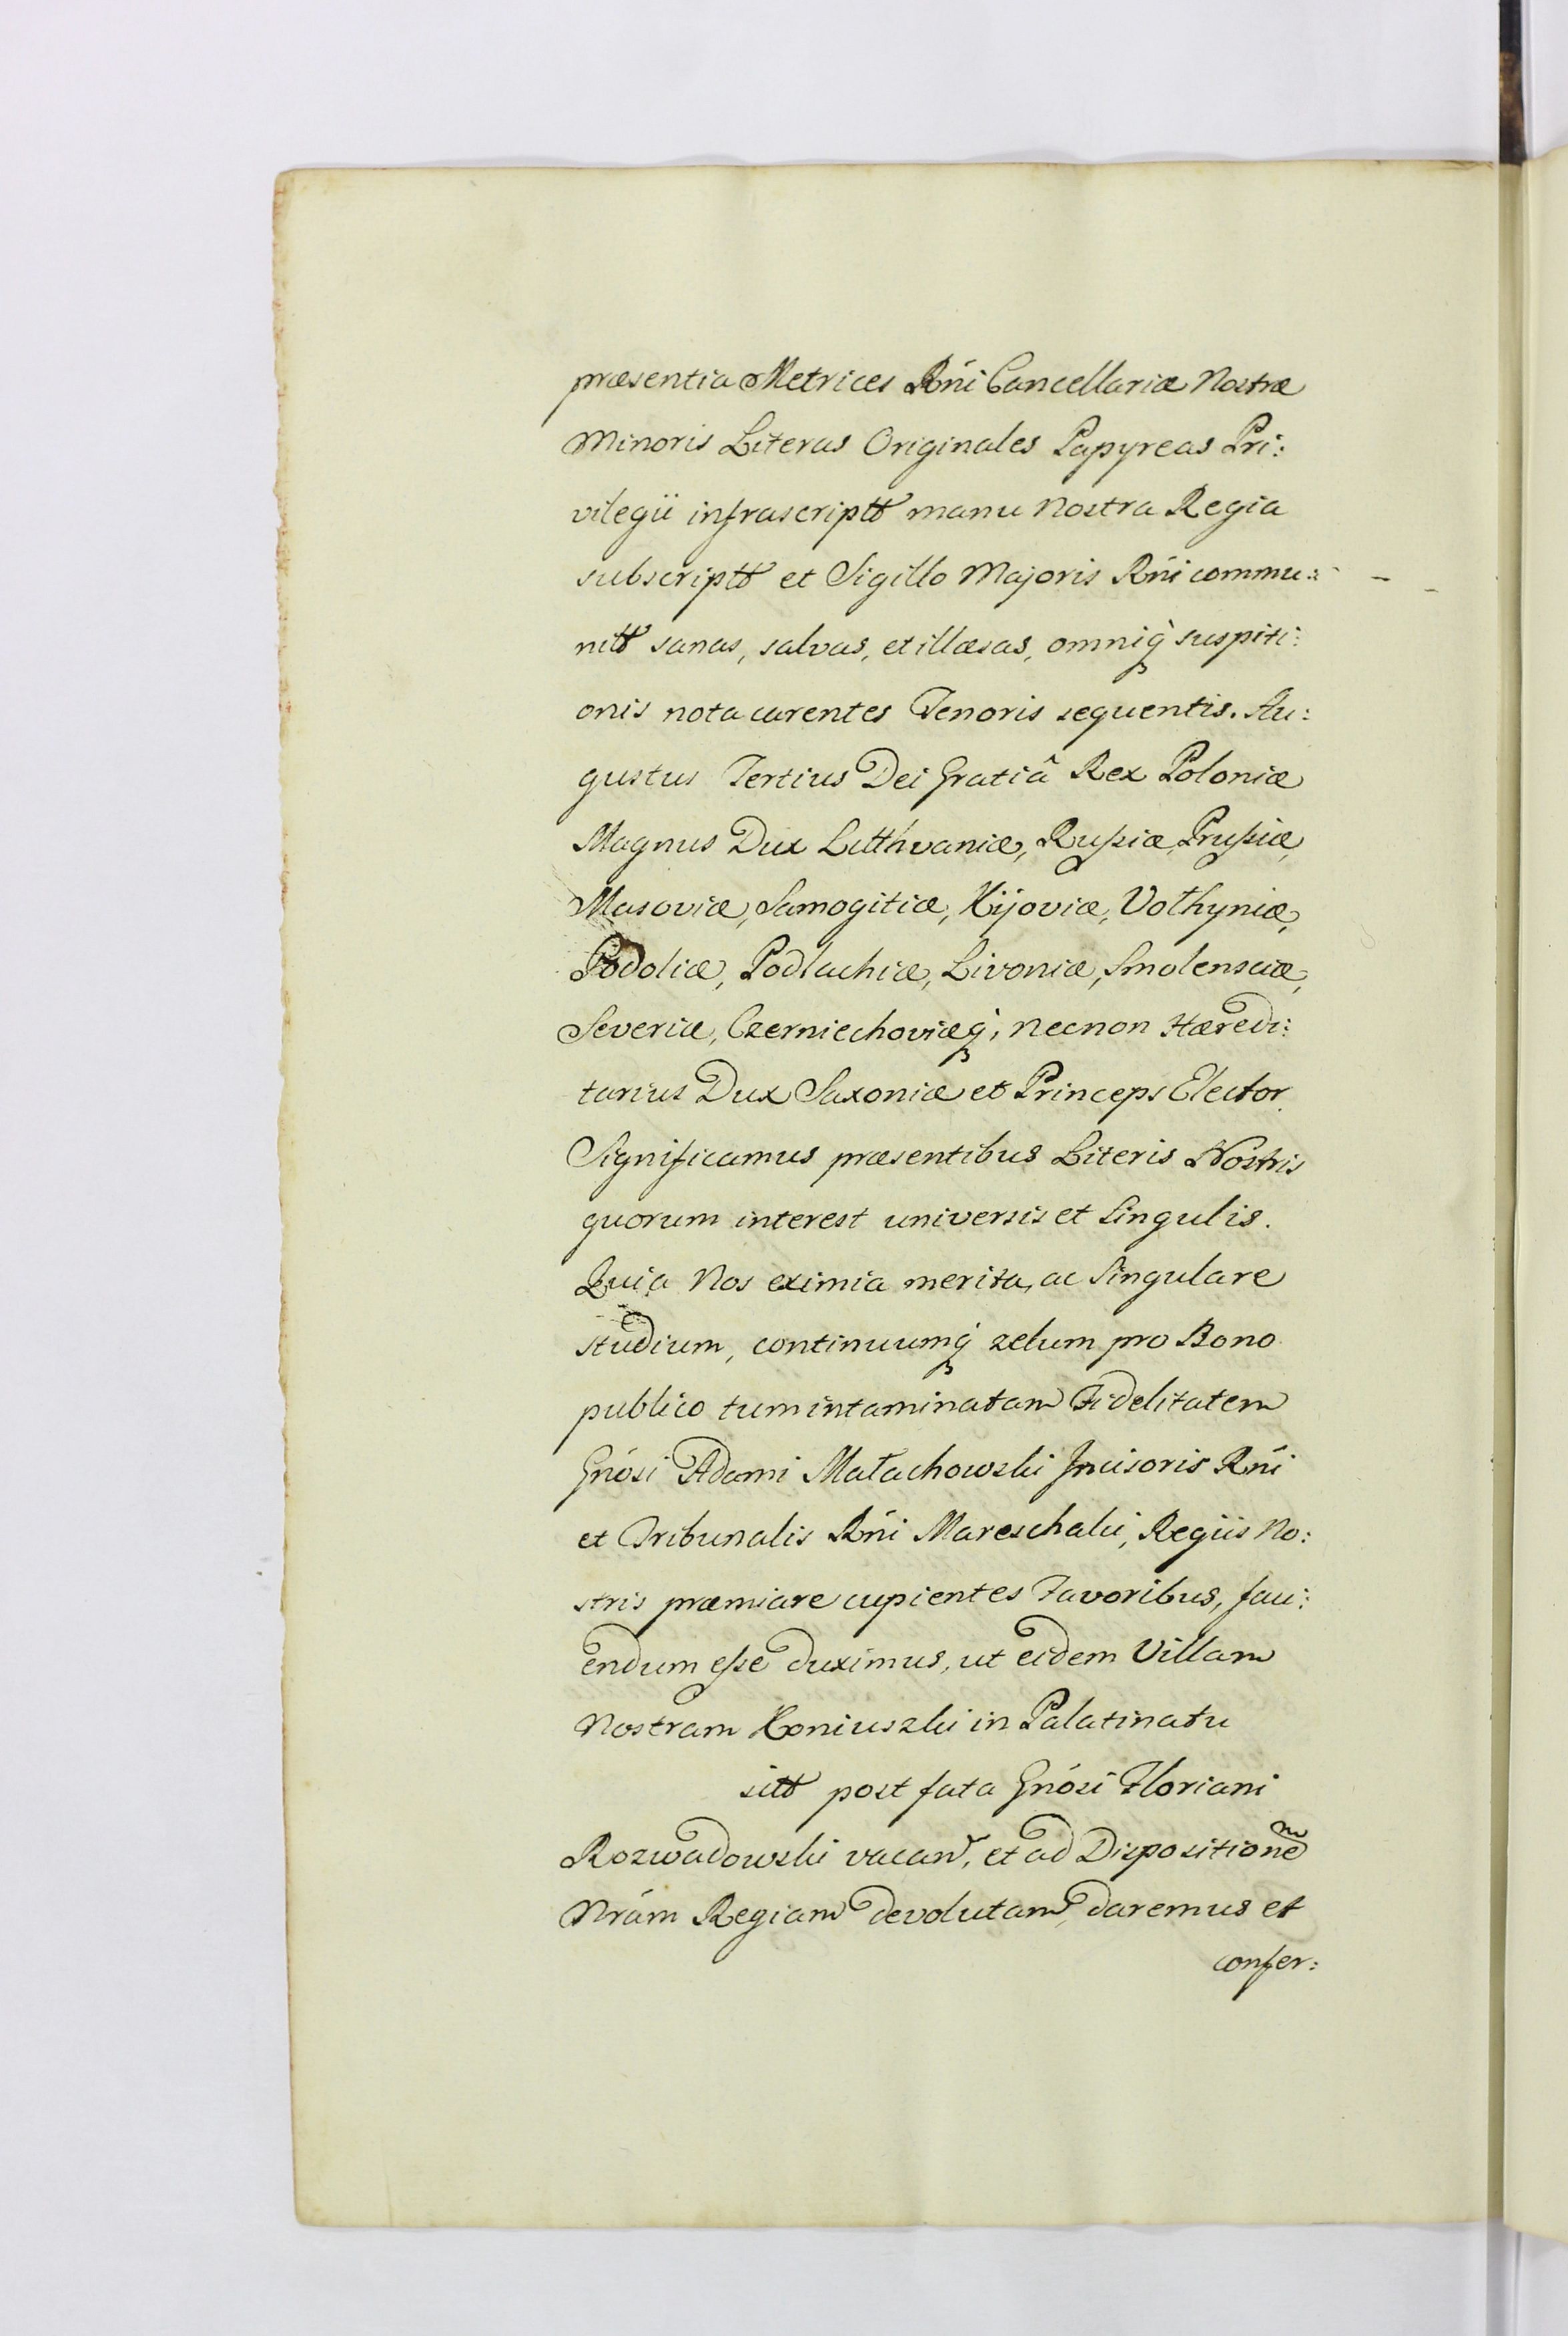 præsentia Metrices Rńi Cancellariæ Nostræ
Minoris Literas Originales Papyreas Pri:
vilegii infrascriptt manu Nostra Regia
subscriptt et Sigillo Majoris Rńi commu:
nitt sanas, salvas, et illæsas, omniq́ suspiti:
onis nota carentes Tenoris sequentis. Au:
gustus Tertius Dei Gratiâ Rex Poloniæ
Magnus Dux Litthvaniæ, Rußiæ, Prußiæ,
Masoviæ, Samogitiæ, Kijoviæ, Volhyniæ,
Podoliæ, Podlachiæ, Livoniæ, Smolensciæ,
Severiæ, Czerniechoviæq́, necnon Hæredi:
tarius Dux Saxoniæ et Princeps Elector.
Significamus præsentibus Literis Nostris
quorum interest universis et Singulis.
Quia Nos eximia merita, ac Singulare
studium, continuumq́ zelum pro Bono
publico tum intaminatam Fidelitatem
Gnósi Adami Małachowski Incisoris Rńi
et Tribunalis Rńi Mareschalci, Regiis No:
stris præmiare cupientes Favoribus, faci:
endum eße duximus, ut eidem Villam
Nostram Koniuszki in Palatinatu
sitt post fata Gnósi Floriani
Rozwadowski vacan, et ad Dispositionem
Nrám Regiam devolutam, daremus et
confer: